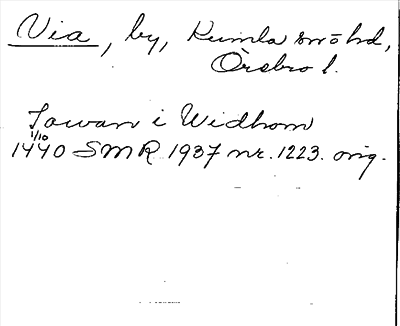 Via, by, Kumla sn o hd,
Örebro l.
Iowan i Widhom
1/10
1440 SMR 1937 nr. 1223. orig.